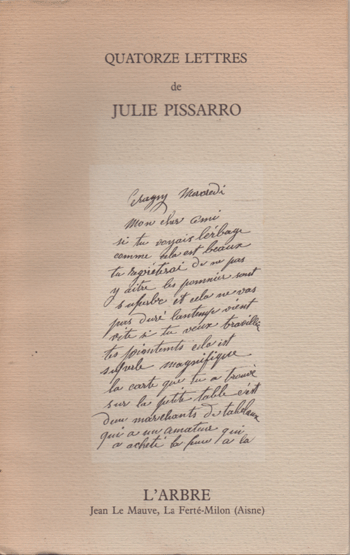 QUATORZE LETTRES
de
JULIE PISSARRO
Eragny Macredi
Mon cher ami
si tu voyais l'erbage
comme sela est beaux
tu repiéterai de ne pas
y aître les pommier sont
superbe et cela ne vas
pas duré lontemps vient
vite si tu veux traveiller
tes pointemts cela est
superbe magnifique
la carte que tu a trouvé
sur la petite table c'est
deun marchants de tableau
qui a un amateur qui
a acheté la pure a la
L'ARBRE
Jean Le Mauve, La Ferté-Milon (Aisne)